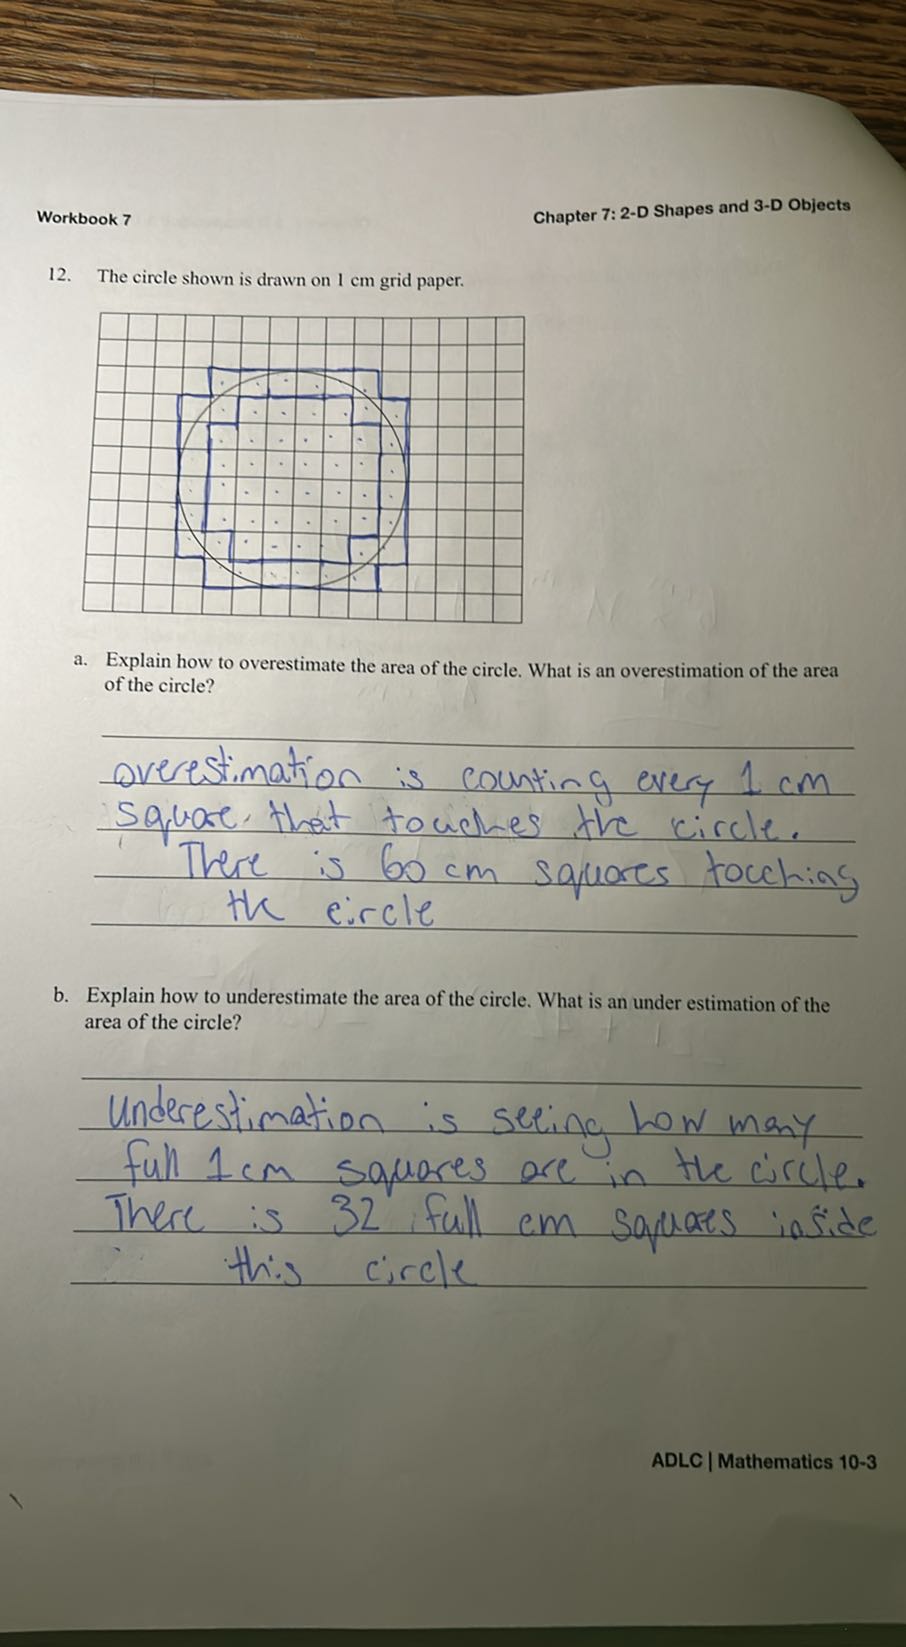 Workbook 7
Chapter 7: 2-D Shapes and 3-D Objects
12. The circle shown is drawn on 1 cm grid paper.
a. Explain how to overestimate the area of the circle. What is an overestimation of the area
of the circle?
overestimation is counting every 1 cm
square that touches the circle.
There is 60 cm squares tocching
the circle
b. Explain how to underestimate the area of the circle. What is an under estimation of the
area of the circle?
Underestimation is seeing how many
full 1cm squares are in the circle.
There is 32 full cm squares inside
this circle
ADLC | Mathematics 10-3